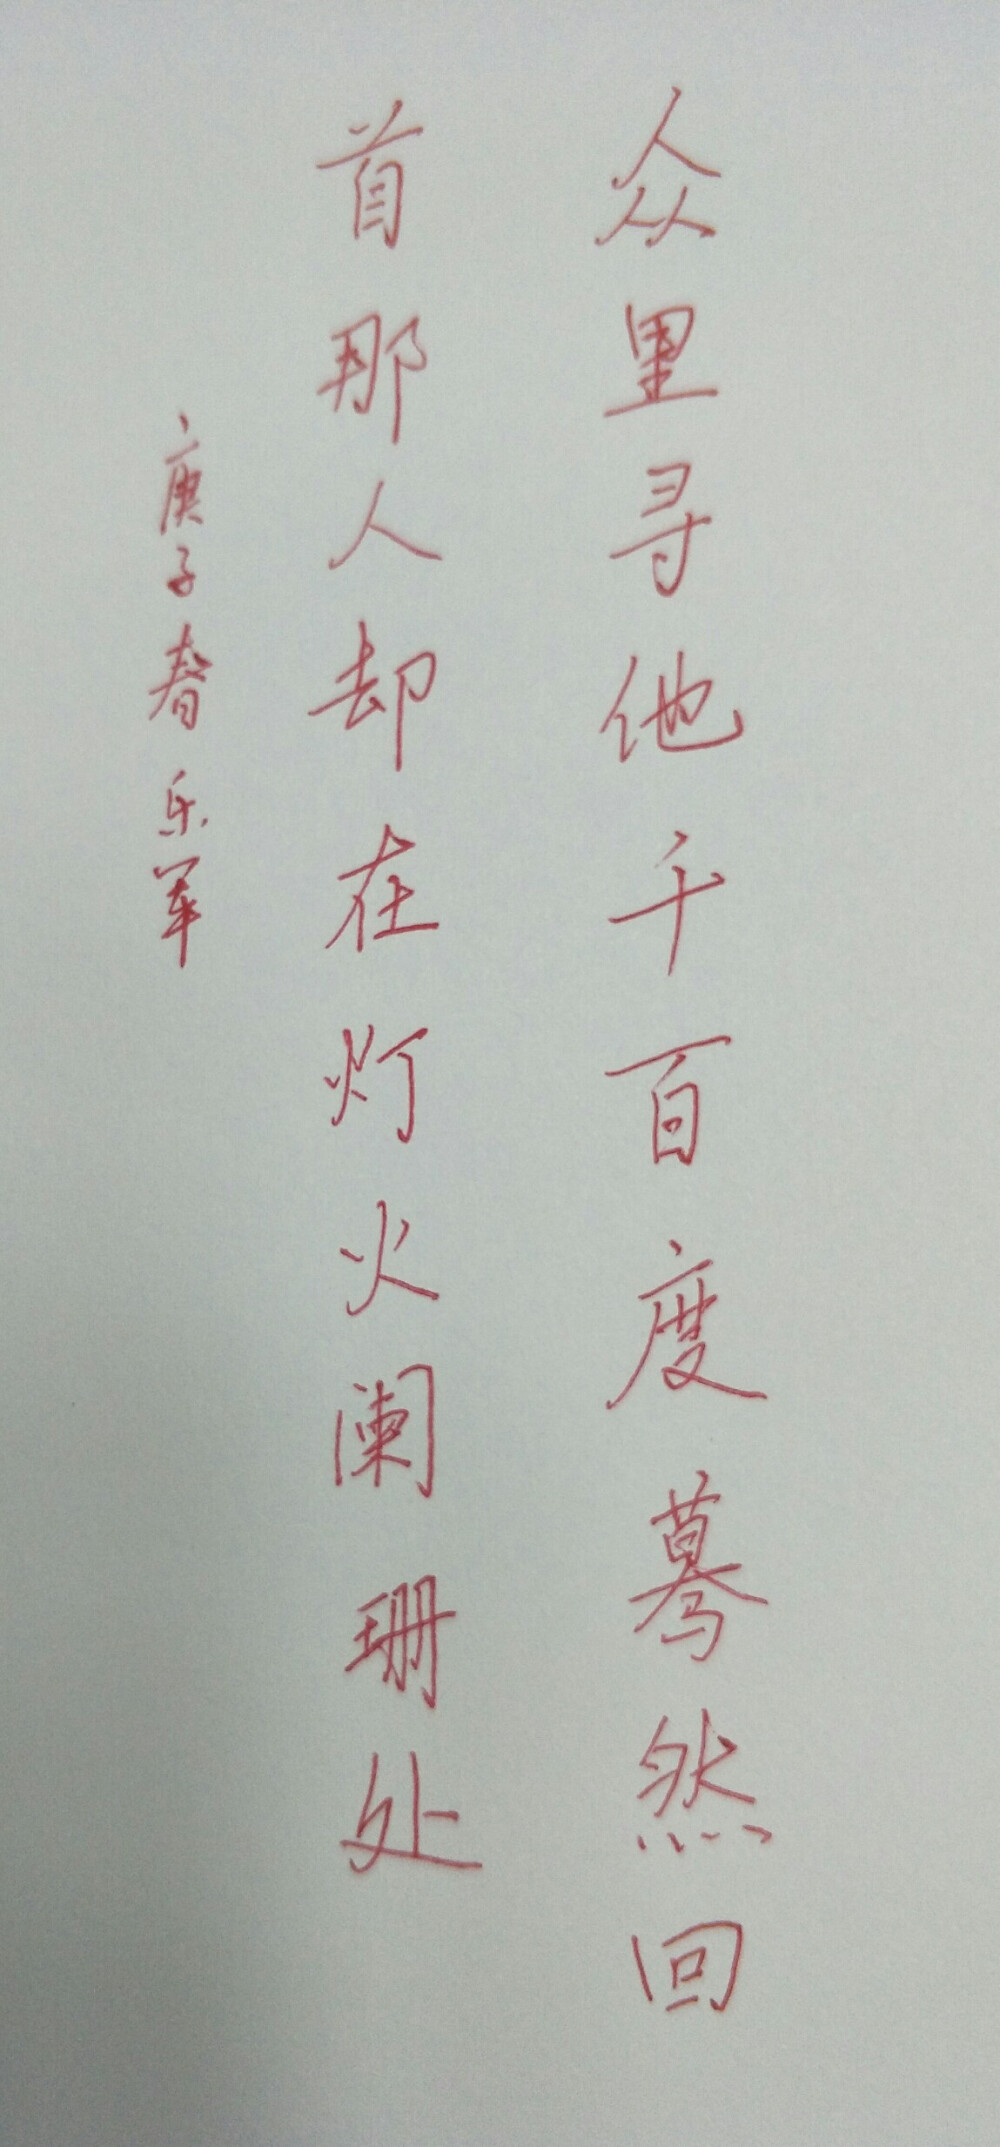 众里寻他千百度蓦然回
首那人却在灯火阑珊处
庚子春乐军